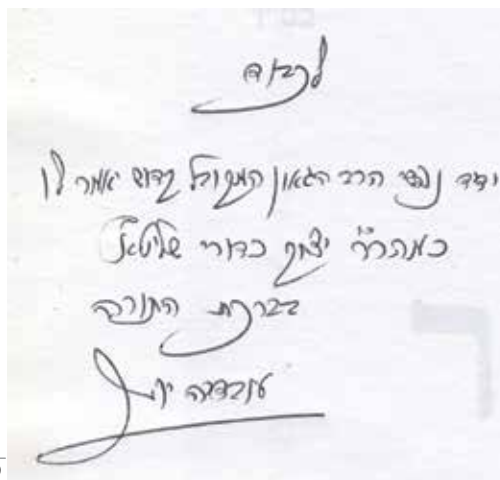 לכבוד
ידיד נפשי הרב הגאון המקובל קדוש יאמר לו
כמהר״ר יצחק כדורי שליט״א
בברכת התורה
עובדיה יוסף